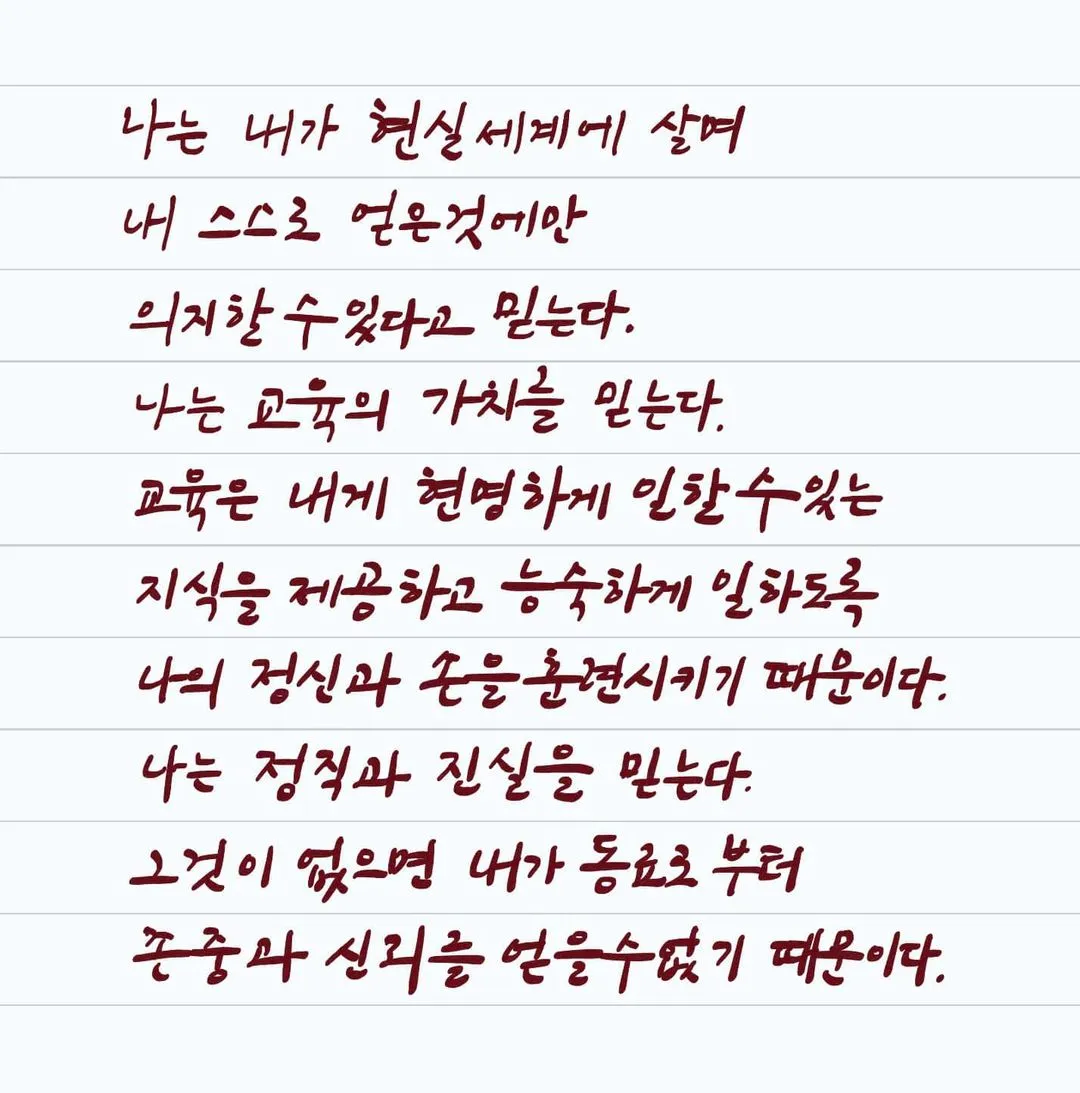 나는 내가 현실세계에 살며
내 스스로 얻은것에만
의지할 수있다고 믿는다.
나는 교육의 가치를 믿는다.
교육은 내게 현명하게 일할수있는
지식을 제공하고 능숙하게 일하도록
나의 정신과 손을 훈련시키기 때문이다.
나는 정직과 진실을 믿는다.
그것이 없으면 내가 동료로 부터
존중과 신뢰를 얻을수없기 때문이다.